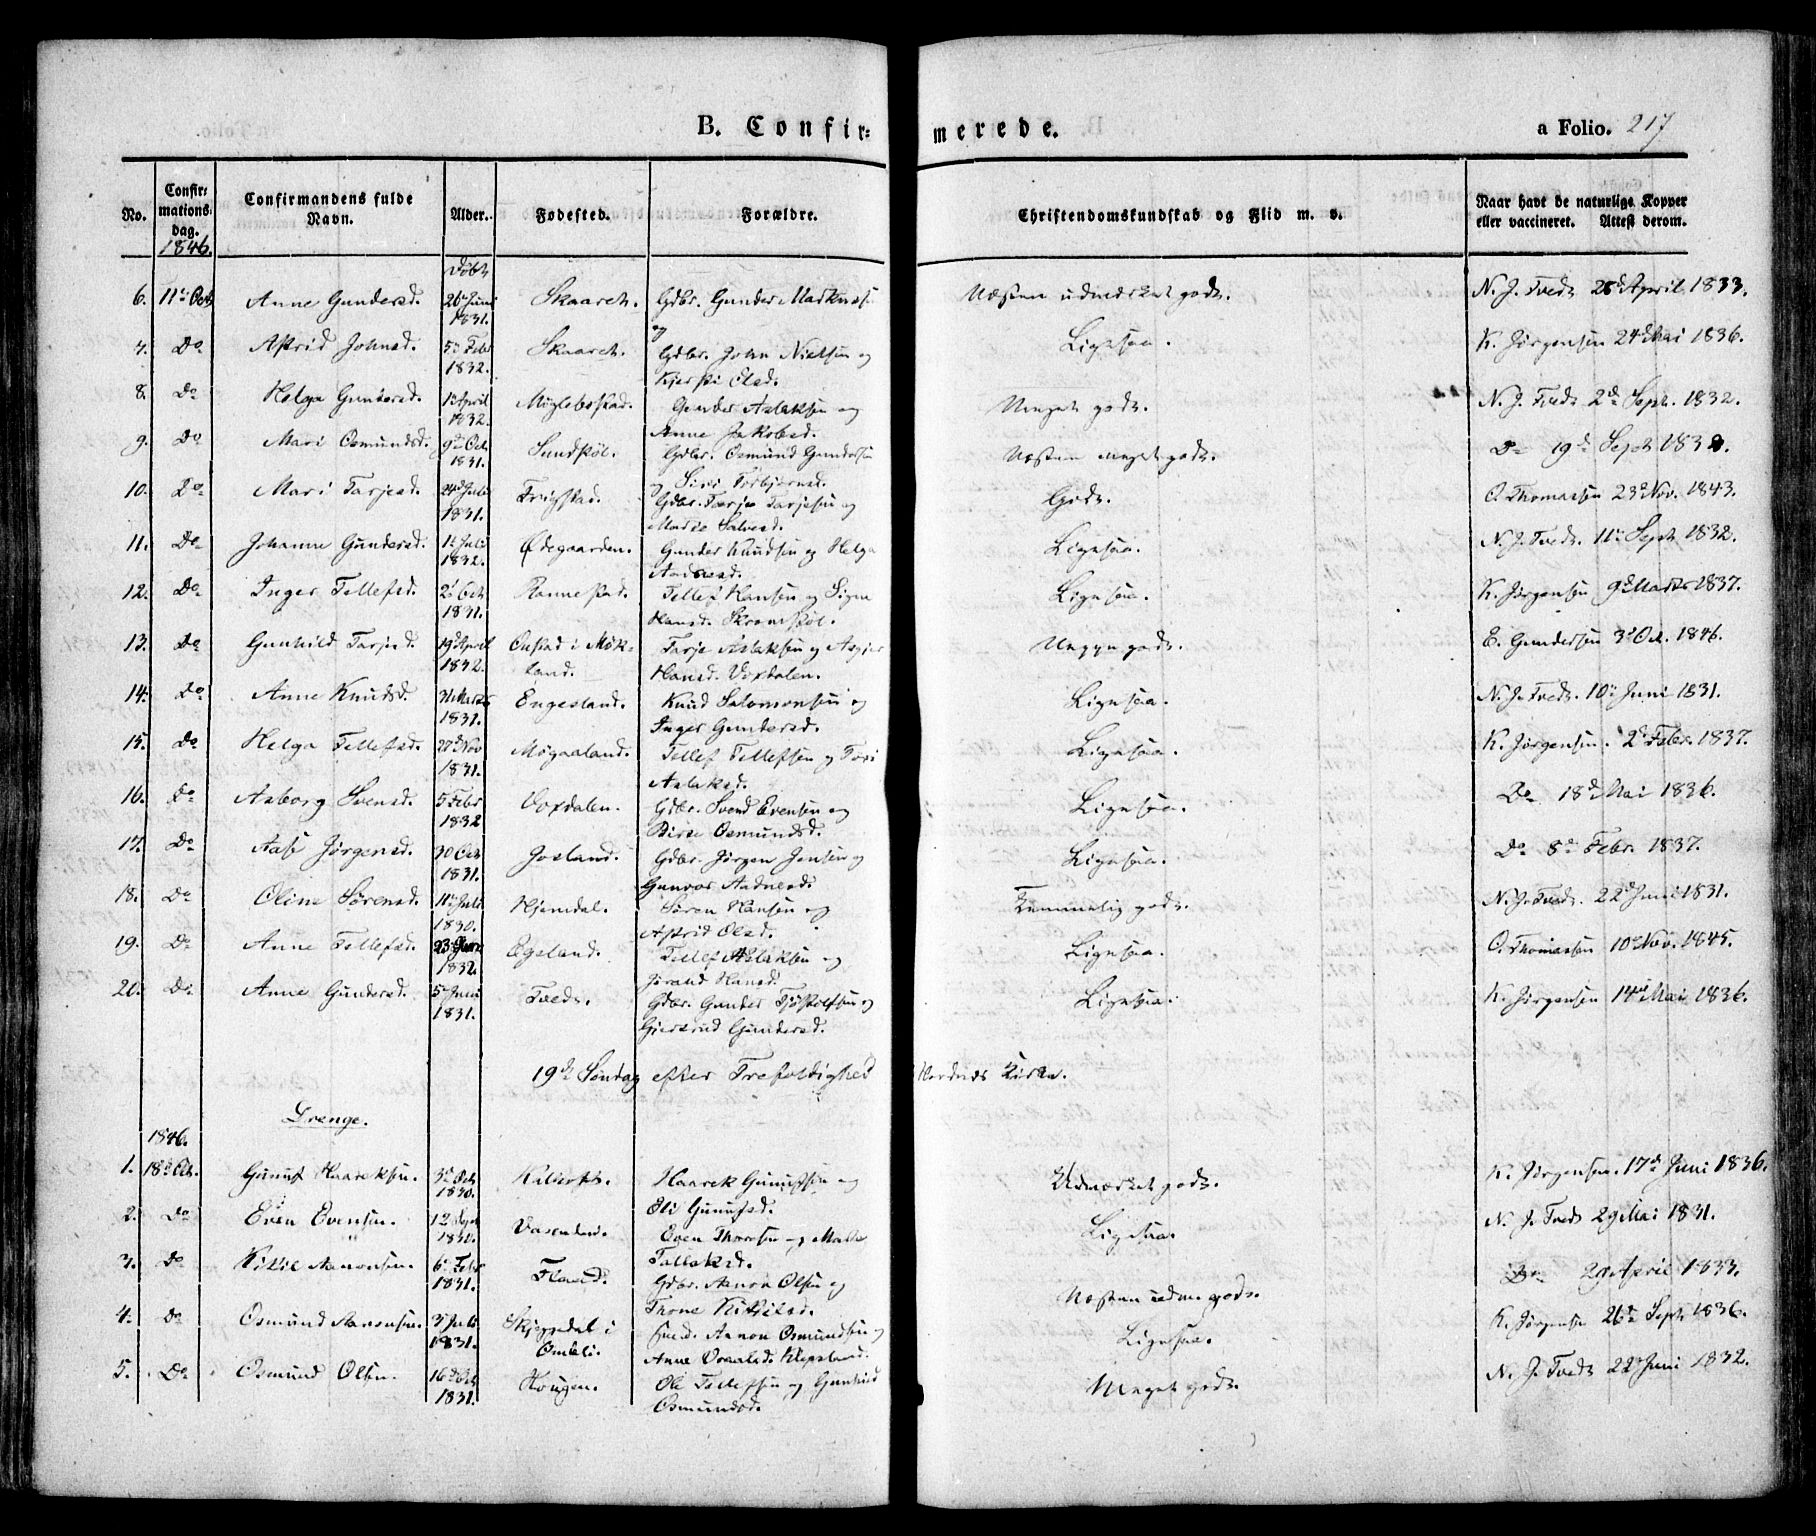 B. Confir= merede. a Folio. 217
No. Confir=mations dag. Confirmandens fulde Navn. Alder. Fødested. Forældre. Christendomskundskab og Flid m. v. Naar havt de naturlige Kopper eller vaccineret. Attest derom.
1846. Døbt
6. 11te Oct Anne Gundersd. 26 Juni 1831. Skaaret. Gdbr. Gunder Næsten udmærket godt. N. J. Tvedt 28d April 1833.
og
7. Do Astrid Johnsd. 5te Febr 1832. Skaaret. Gdbr. John Nielsen og Kjersti Olsd. Ligesaa. K. Jørgensen 24d Mai 1836.
8. Do Helga Gundersd. 13 April 1832. Møglebostad. Gunder Aslaksen og Anne Jakobsd. Meget godt. N. J. Tvedt 2d Sept. 1832.
9. Do Mari Osmundsd. 9de Oct 1831. Sundstøl. Gdbr. Osmund Gundersen og Siri Torbjørnsd. Næsten meget godt. Do 19d Sept 1832.
10. Do Mari Tarjesd. 24d Juli 1831. Trigstad. Gdbr. Tarje Tarjesen og Marie Salvesd. Godt. O. Thomassen 23d Nov. 1843.
11. Do Johanne Gundersd. 1te Juli 1832. Ødegaarden. Gunder Knudsen og Helga Andersd. Ligesaa. N. J. Tvedt. 11te Sept 1832.
12. Do Inger Tellefsd. 2d Oct 1831. Rannestad. Tellef Hansen og Signe Hansd. Ligesaa. K. Jørgensen 9d Marts 1837.
13. Do Gunhild Tarjesd. 19d April 1832. Onstad i Møkland. Tarje Aslaksen og Asgjer Hansd. Voxdalen. Meget godt. E. Gundersen 3d Oct. 1846.
14. Do Anne Knudsd. 31 Marts 1831. Engesland. Knud Salomonsen og Inger Gundersd. Ligesaa. N. J. Tvedt. 10de Juni 1831.
15. Do Helga Tellefsd. 20d Nov 1831. Møgaaland. Tellef Tellefsen og Tori Aslaksd. Ligesaa. K. Jørgensen. 2d Febr. 1837.
16. Do Aaborg Svensd. 5 Febr 1832 Voxdalen. Gdbr. Svend Evensen og Birte Osmundsd. Ligesaa. Do 18d Mai 1836.
17. Do Aase Jørgensd. 30 Oct 1831. Josland. Gdbr. Jørgen Jensen og Gunvor Aadnesd. Ligesaa. Do 8de Febr. 1837.
18. Do Oline Sørensd. 11te Juli 1830. Hjemdal. Søren Hansen og Astrid Olsd. Temmelig godt. N. J. Tvedt. 22d Juni 1831.
19. Do Anne Tellefsd. 23 1832. Øgsland. Tellef Aslaksen og Jørand Hansd. Ligesaa. O. Thomassen 10de Nov. 1845.
20. Do Anne Gundersd. 5te Juni 1831. Tvedt. Gdbr. Gunder Tjøstolfsen og Gjertrud Gundersd. Ligesaa. K. Jørgensen 14de Mai 1836.
19de Søndag efter Trefoldighed Herefoss Kirke.
Drenge.
1846.
1. 18d Oct. Gunuf Haareksen 3d Oct 1830. Haarek Gunufsen og Oli Gunufsd. Udmærket godt. K. Jørgensen. 17d Juni 1836.
2. Do Even Evensen. 12 1830. Vasendal. Even Thorsen og Malle Tallaksd. Ligesaa. N. J. Tvedt 29 Mai 1831.
3. Do Kittil Aanonsen. 6te Febr 1831. Flaad. Gdbr. Aanon Olsen og Thone Kittilsd. Næsten udm. godt. Do 29 April 1833.
4. Do Osmund Aanonsen. 3d Juli 1831. Skjeggedal i Omli. Aanon Osmundsen og Anne Klepsland. Ligesaa. K. Jørgensen 26de Sept 1836.
5. Do Osmund Olsen. 16d Oct 1831. Hougen. Ole Tellefsen og Gunhild Osmundsd. Meget godt. N. J. Tvedt 22de Juni 1832.